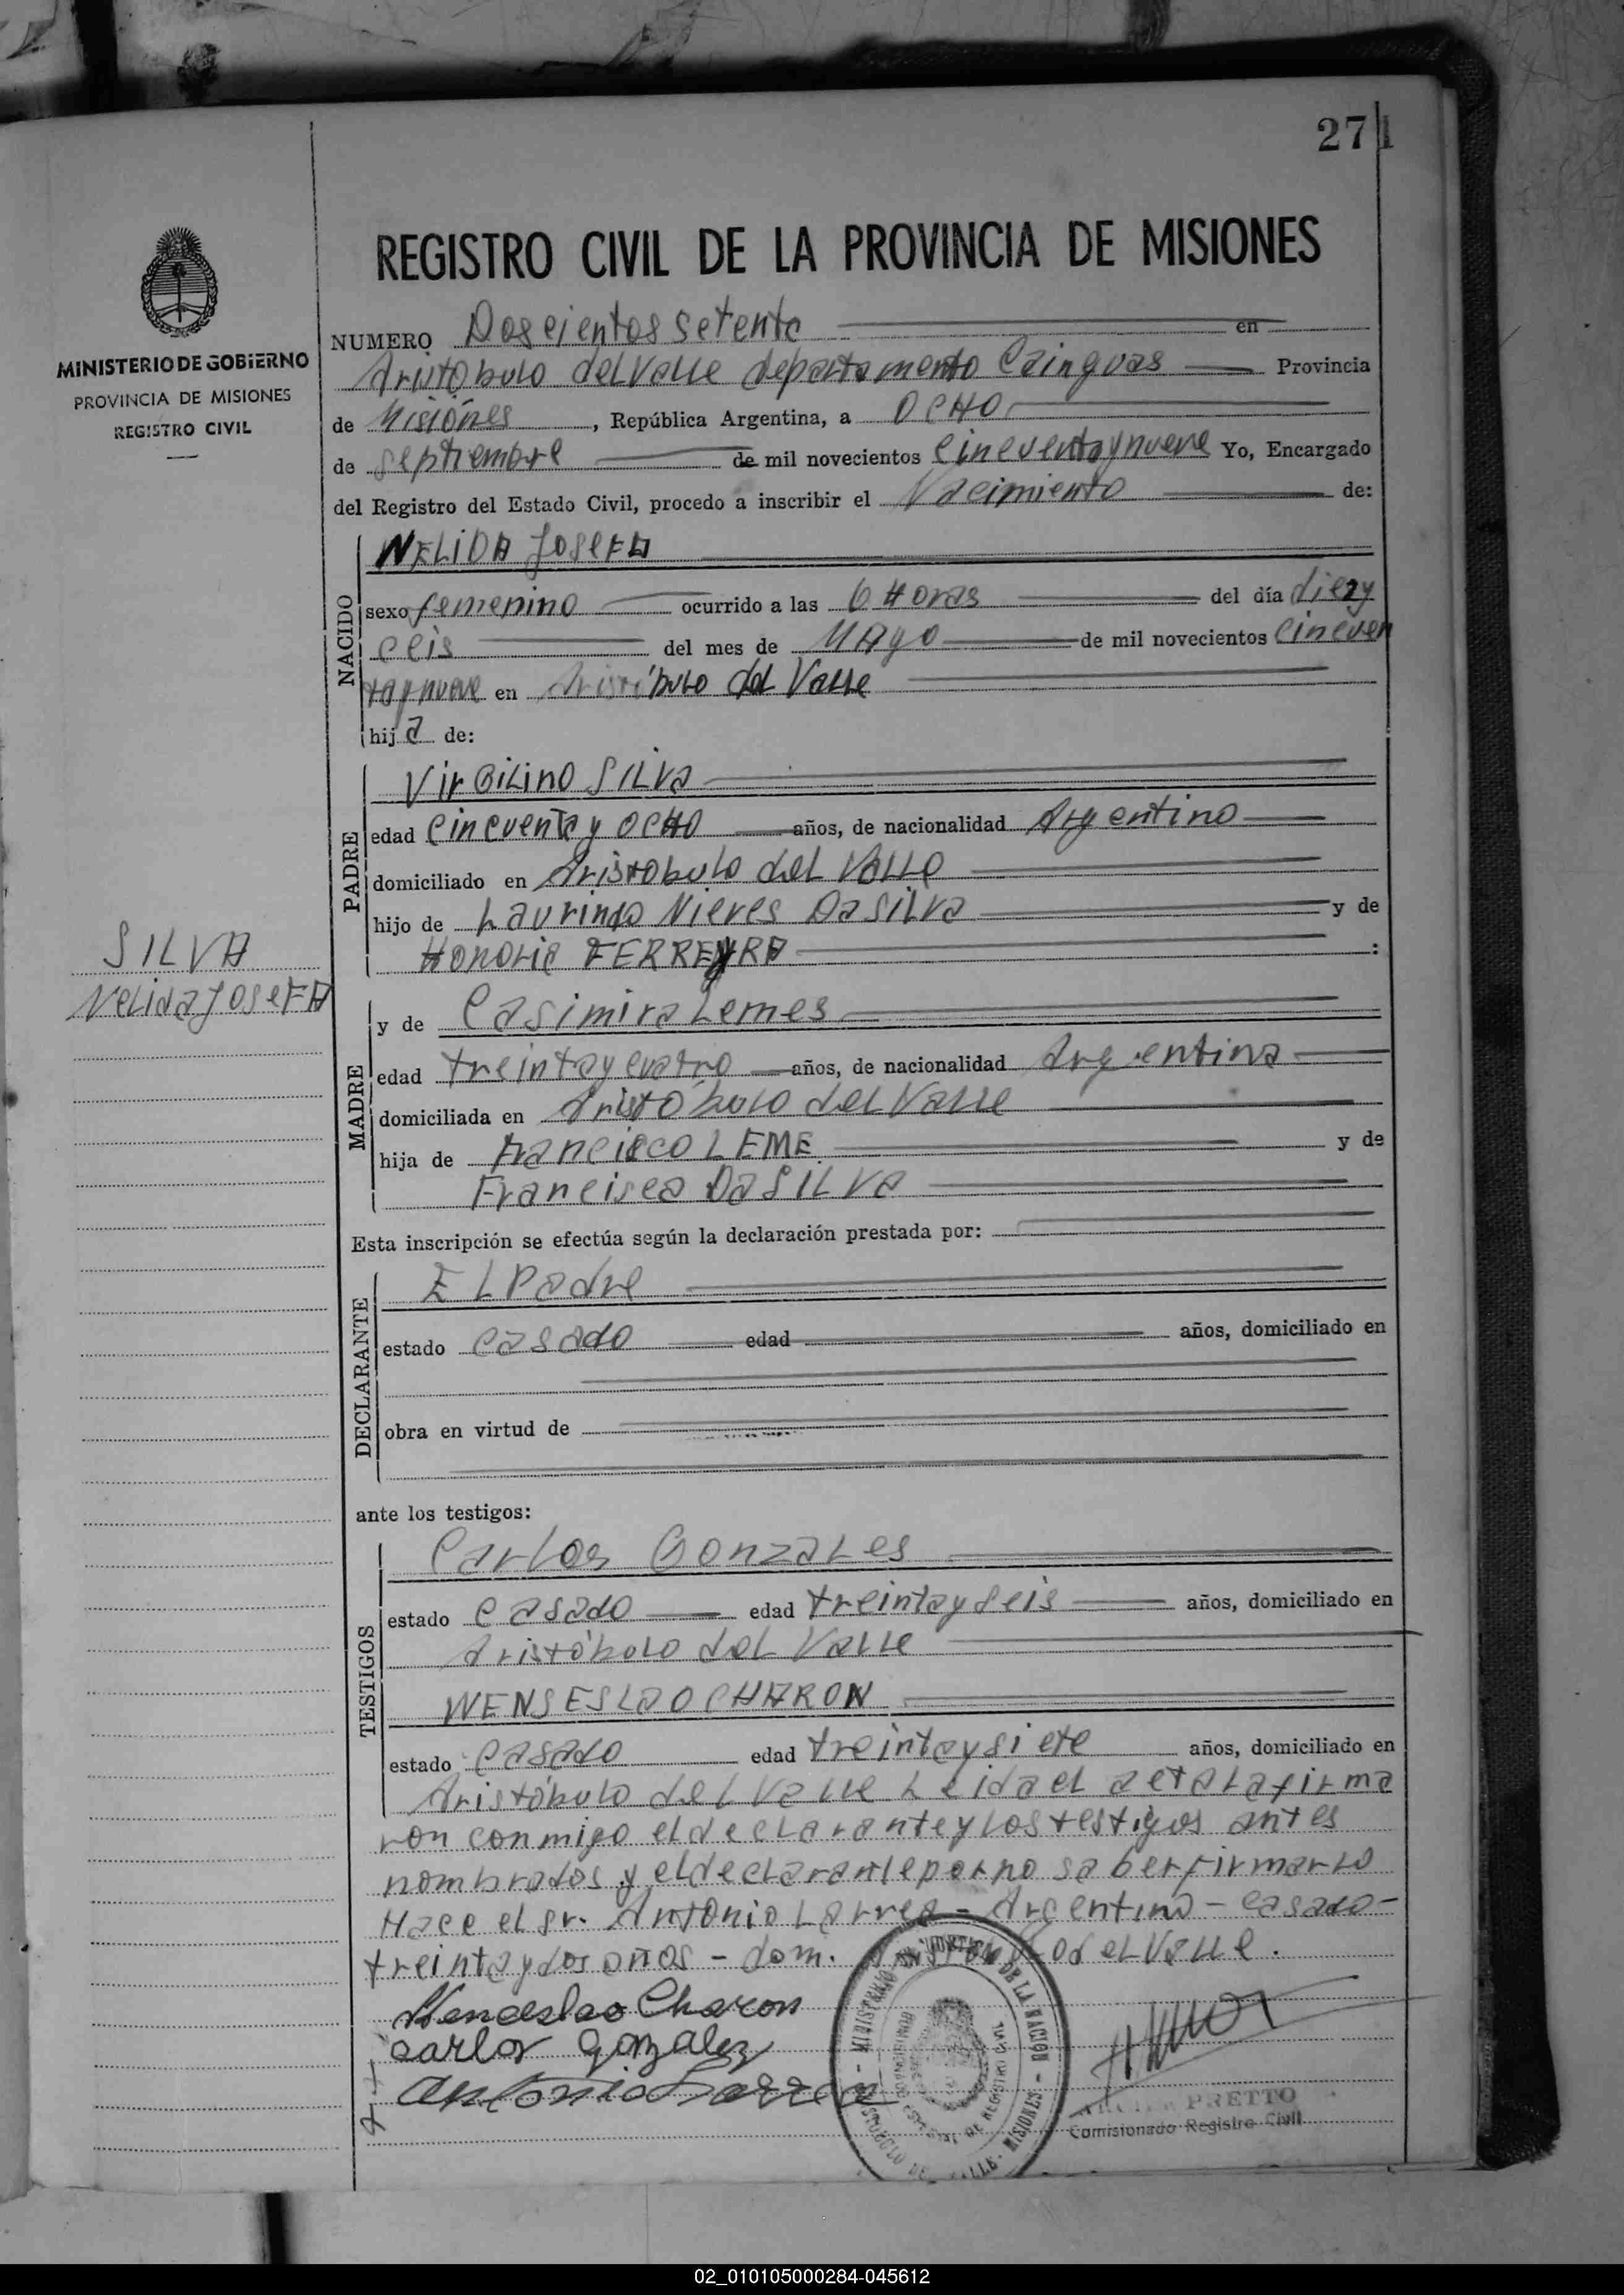 271
REGISTRO CIVIL DE LA PROVINCIA DE MISIONES
MINISTERIO DE GOBIERNO
PROVINCIA DE MISIONES
REGISTRO CIVIL
NUMERO Doscientos setenta en
Aristóbulo del Valle departamento Cainguas Provincia
de Misiónes, República Argentina, a OCHO
de septiembre de mil novecientos cincuentaynueve Yo, Encargado
del Registro del Estado Civil, procedo a inscribir el Nacimiento de:
NACIDO
NELIDA JOSEFA
sexo femenino ocurrido a las 6 Horas del día diezy
ceis del mes de MAyo de mil novecientos cincuen
taynueve en Aristóbulo del Valle
hija de:
PADRE
VirGiLino SILVA
edad cincuenta y OCHO años, de nacionalidad Argentino
domiciliado en Aristobulo del Valle
hijo de Laurindo Nieves DaSilva y de
Honoria FERREYRA :
SILVA
Nelida JOSEFA
MADRE
y de Casimira Lemes
edad treintaycuatro años, de nacionalidad Argentina
domiciliada en Aristóbulo del Valle
hija de Francisco LEME y de
Francisca DaSILVa
Esta inscripción se efectúa según la declaración prestada por:
DECLARANTE
EL Padre
estado casado edad años, domiciliado en
obra en virtud de
ante los testigos:
TESTIGOS
Carlos Gonzales
estado casado edad treintayseis años, domiciliado en
Aristóbulo del Valle
WENSESLAO CHARON
estado casado edad treintaysiete años, domiciliado en
Aristóbulo del Valle Leida el acta La firma
ron conmigo el declarante y Los testigos antes
nombrados y el declarante por no saber firmar Lo
Hace el sr. Antonio Larrea - Argentino - casado -
treintaydos años - dom. Aristobulo del Valle.
Wenceslao Charon
carlos gonzalez
antonio Larrea
MINISTERIO DE JUSTICIA DE LA NACION - MISIONES
PRETTO
Comisionado Registro Civil
02_010105000284-045612